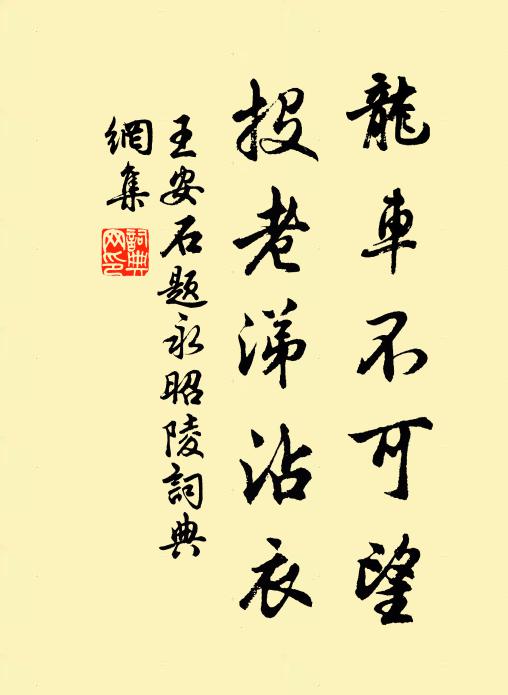 龍車不可望
投老涕沾衣
王安石題永昭陵詞典
網集
詞典
网印